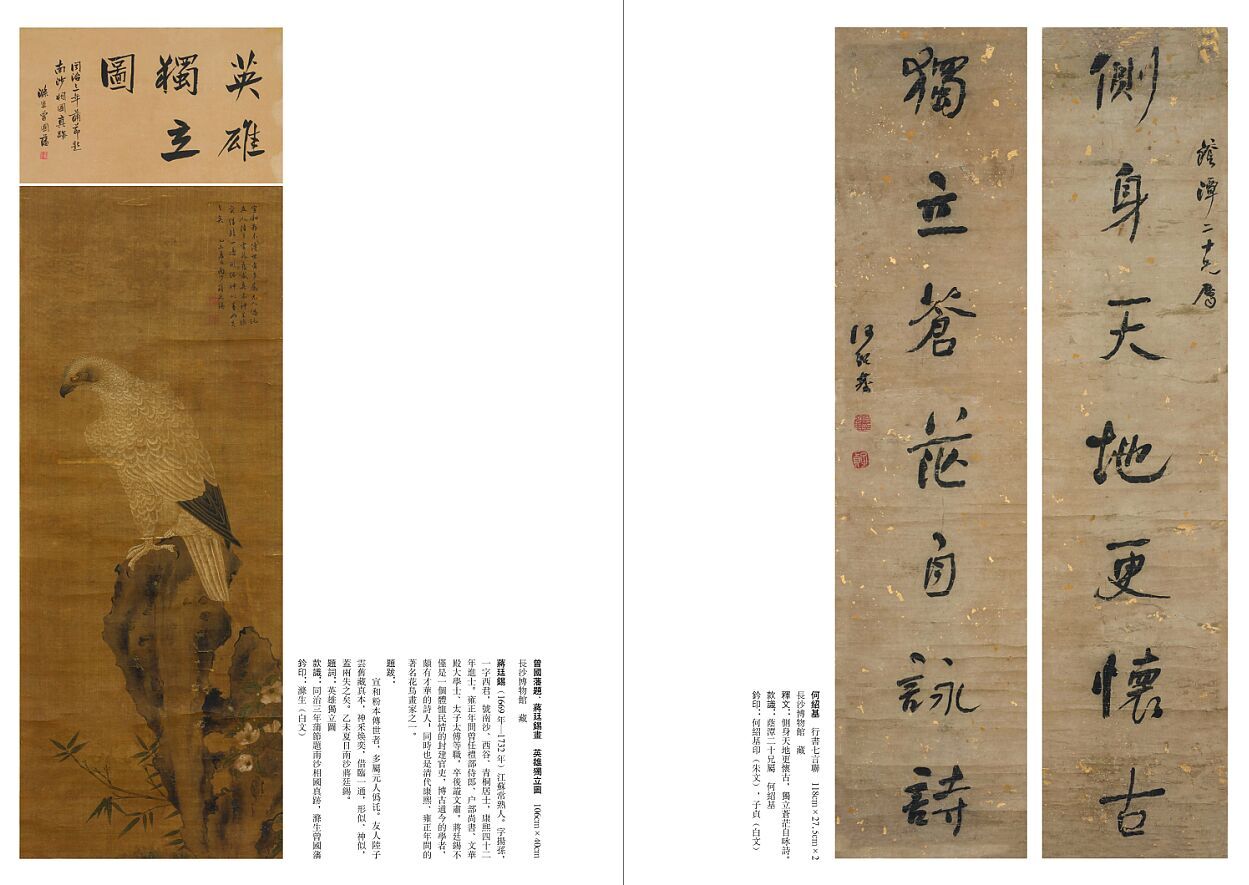 蔭潭二十兄屬
側身天地更懷古
獨立蒼茫自詠詩
何紹基
何紹基　行書七言聯　118cm×27.5cm×2
長沙博物館　藏
釋文：側身天地更懷古，獨立蒼茫自咏詩。
款識：蔭潭二十兄屬　何紹基
鈐印：何紹基印（朱文）、子貞（白文）
曾國藩題、蔣廷錫畫　英雄獨立圖　106cm×40cm
長沙博物館　藏
蔣廷錫（1669年—1732年）江蘇常熟人。字揚孫，
一字酉君，號南沙、西谷、青桐居士，康熙四十二
年進士。雍正年間曾任禮部侍郎、户部尚書、文華
殿大學士、太子太傅等職，卒後謚文肅。蔣廷錫不
僅是一個體恤民情的封建官吏，博古通今的學者，
頗有才華的詩人，同時也是清代康熙、雍正年間的
著名花鳥畫家之一。
題跋：
宣和粉本傳世者，多屬元人偽託。友人陸子
雲舊藏真本，神采煥奕，借臨一通，形似、神似，
蓋兩失之矣。乙未夏日南沙蔣廷錫。
題詞：英雄獨立圖
款識：同治三年蒲節題南沙相國真跡，滌生曾國藩
鈐印：滌生（白文）
英雄
獨立
圖
同治三年蒲節題
南沙相國真跡
滌生曾國藩
宣和粉本傳世者多屬元人偽託
友人陸子雲舊藏真本神采煥
奕借臨一通形似神似蓋兩失
之矣　乙未夏日南沙蔣廷錫